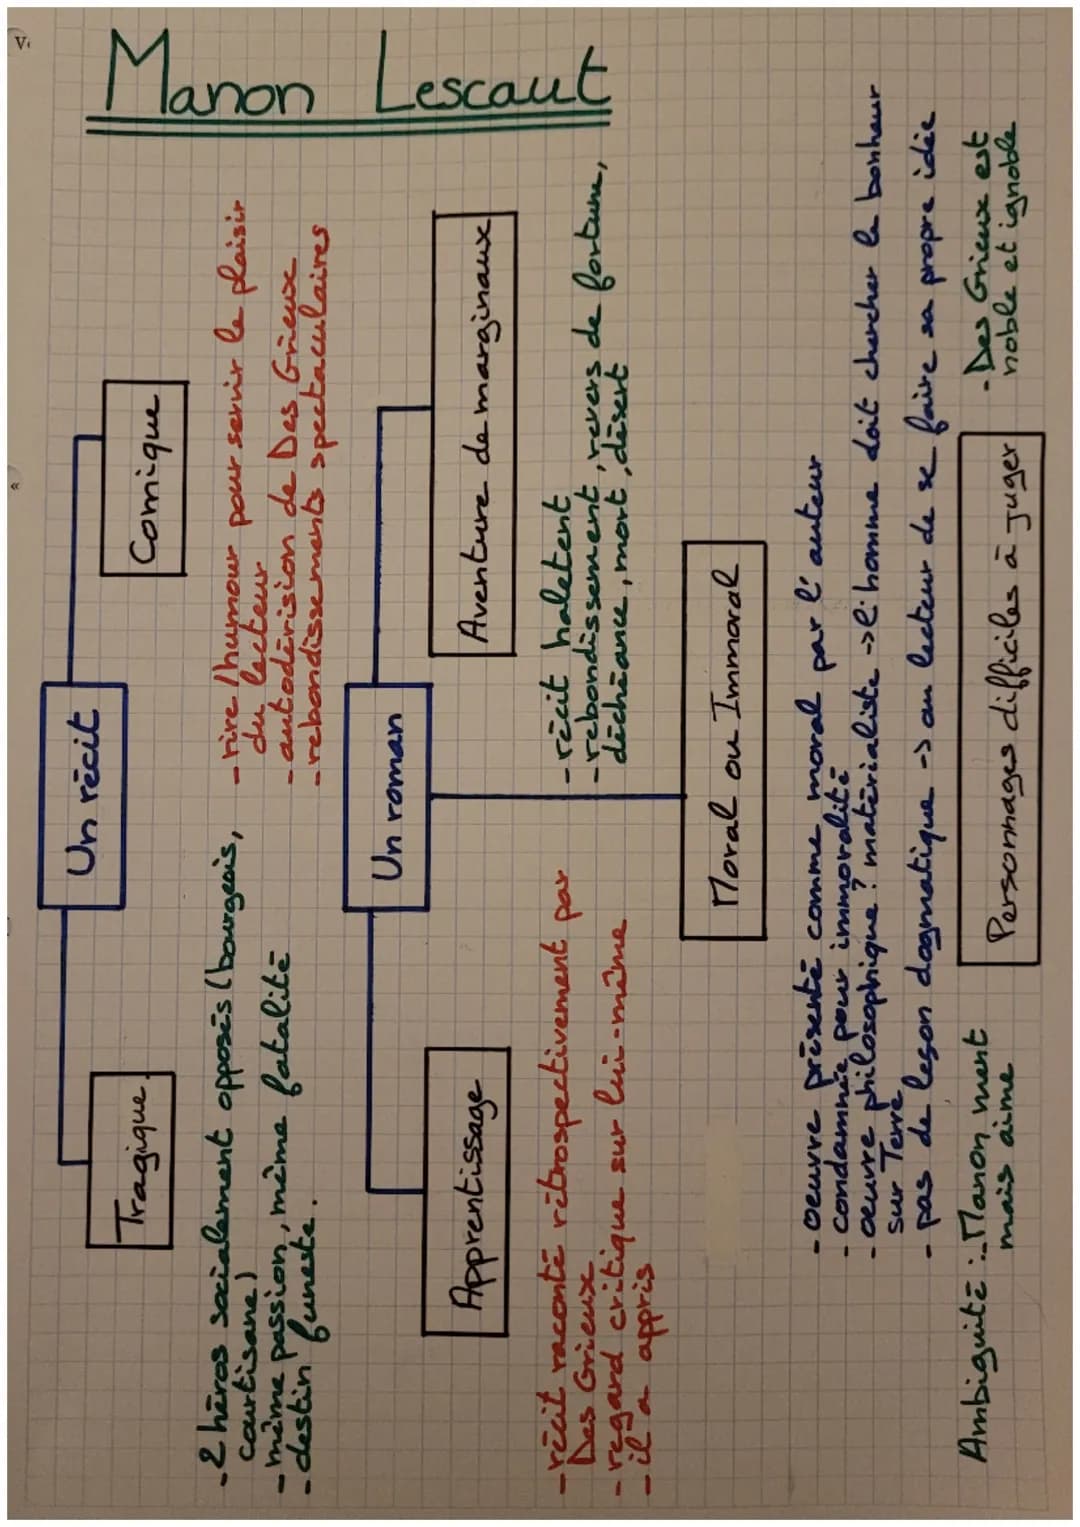 Manon Lescaut
Un récit
Tragique
Comique
- 2 héros socialement opposés (bourgeois,
courtisane)
- même passion, même fatalité
- destin funeste.
- rire / humour pour servir le plaisir
du lecteur
- autodérision de Des Grieux
- rebondissements spectaculaires
Un roman
Apprentissage
Aventure de marginaux
- récit raconté rétrospectivement par
Des Grieux
- regard critique sur lui-même
- il a appris
- récit haletent
- rebondissement, revers de fortune,
déchéance, mort, désert
Moral ou Immoral
- oeuvre présenté comme moral par l'auteur
- condamnée pour immoralité
- oeuvre philosophique? matérialiste -> l'homme doit chercher le bonheur
sur Terre
- pas de leçon dogmatique -> au lecteur de se faire sa propre idée
Personnages difficiles à juger
Ambiguité : - Manon ment
mais aime
- Des Grieux est
noble et ignoble